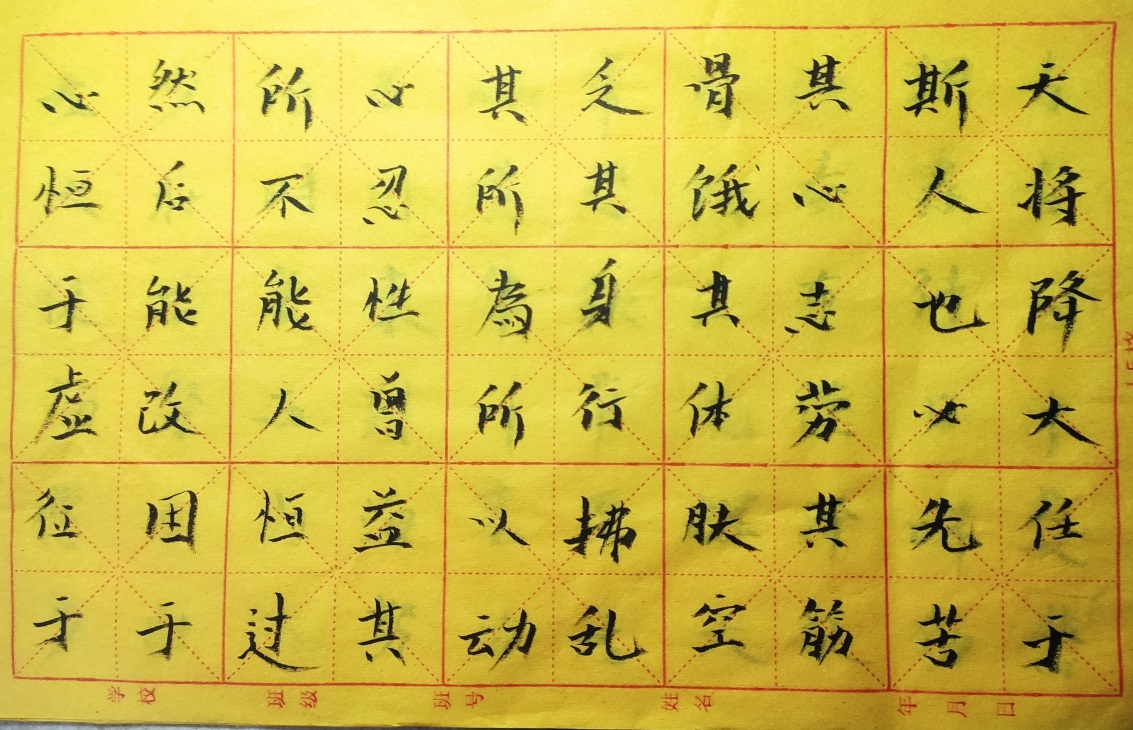 天将降大任于
斯人也必先苦
其心志劳其筋
骨饿其体肤空
乏其身行拂乱
其所為所以动
心忍性曾益其
所不能人恒过
然后能改困于
心恒于虚征于
学校
班级
班号
姓名
年月日